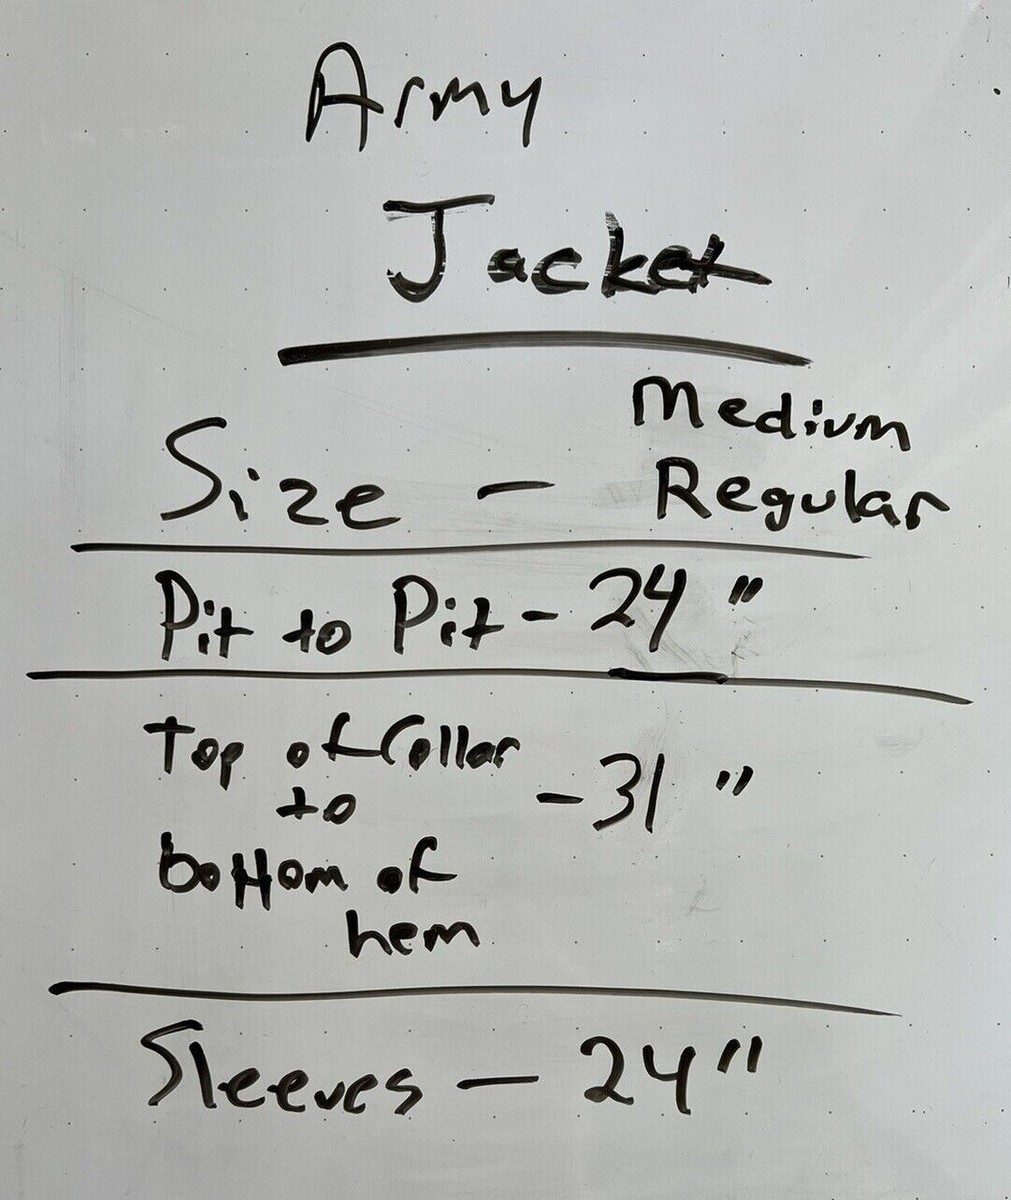 Army
Jacket
Medium
Size - Regular
Pit to Pit - 24"
Top of Collar
to - 31"
bottom of
hem
Sleeves - 24"